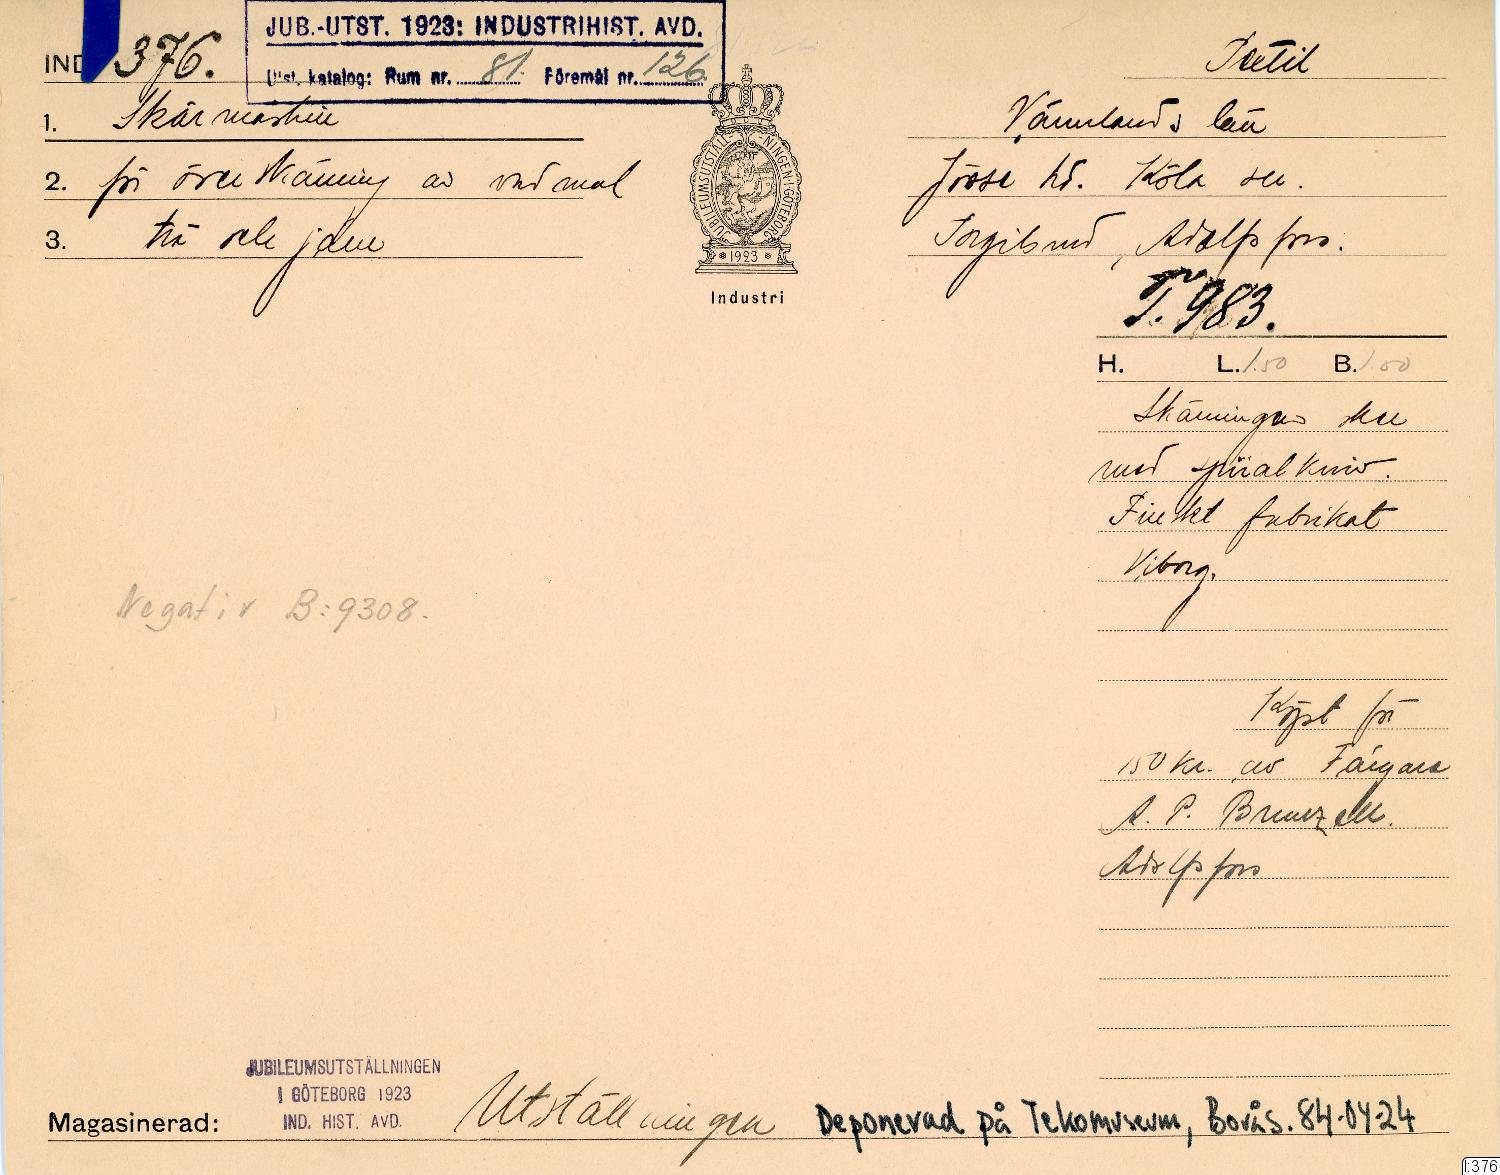 JUB.-UTST. 1923: INDUSTRIHIST. AVD.
Utst. katalog: Rum nr. 81. Föremål nr. 126.
IND 376.
1. Skärmaskin
2. för överskärning av vadmal
3. trä och järn
JUBILEUMSUTSTÄLLNINGEN·I·GÖTEBORG
1923
Industri
Textil
Värmlands län
Jösse hd. Köla sn.
Torgilsrud, Adolfsfors.
T. 983.
H. L. 1.50 B. 1.50
Skärningen sker
med spiralkniv.
Finskt fabrikat
Viborg.
Negativ B:9308.
Köpt för
150 kr. av Färgare
A. P.
Adolfsfors
JUBILEUMSUTSTÄLLNINGEN
I GÖTEBORG 1923
IND. HIST. AVD.
Magasinerad: Utställningen Deponerad på Tekomuseum, Borås. 84-04-24
I:376